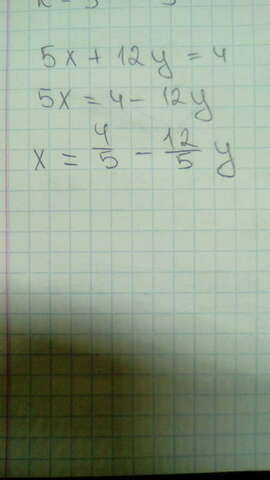 5x + 12y = 4
5x = 4 - 12y
x = 4/5 - 12/5 y